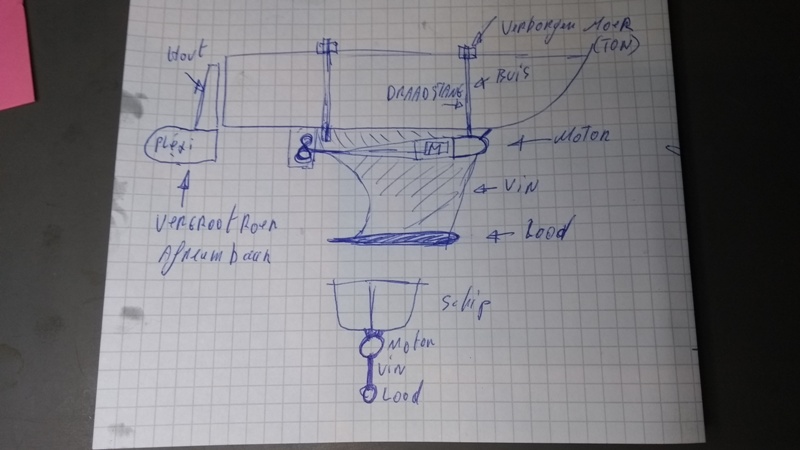 Verborgen Moer
(TON)
Hout
BUIS
DRAADSTANG
Plexi
M
Motor
Vin
Lood
VERGROOT ROER
Afneembaar
Schip
Motor
Vin
Lood